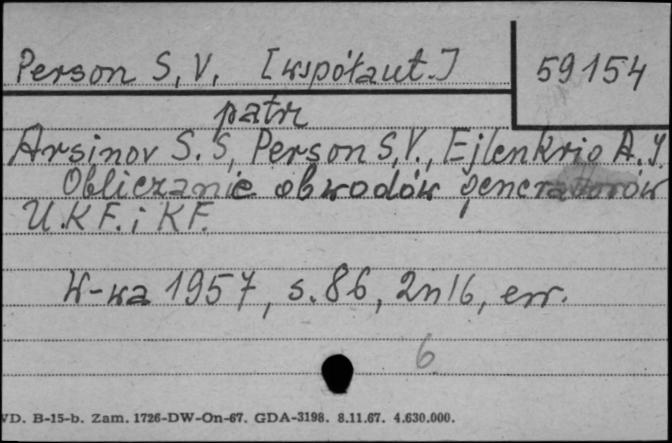 Person S. V. [współaut.] 59154
patrz
Arsinov S. S, Person S. V., Ejlenkrig A. J.
Obliczanie obwodów generatorów
U.K F. i KF.
W-wa 1957, s. 86, 2nl6, err.
6
VD. B-15-b. Zam. 1726-DW-On-67. GDA-3198. 8.11.67. 4.630.000.